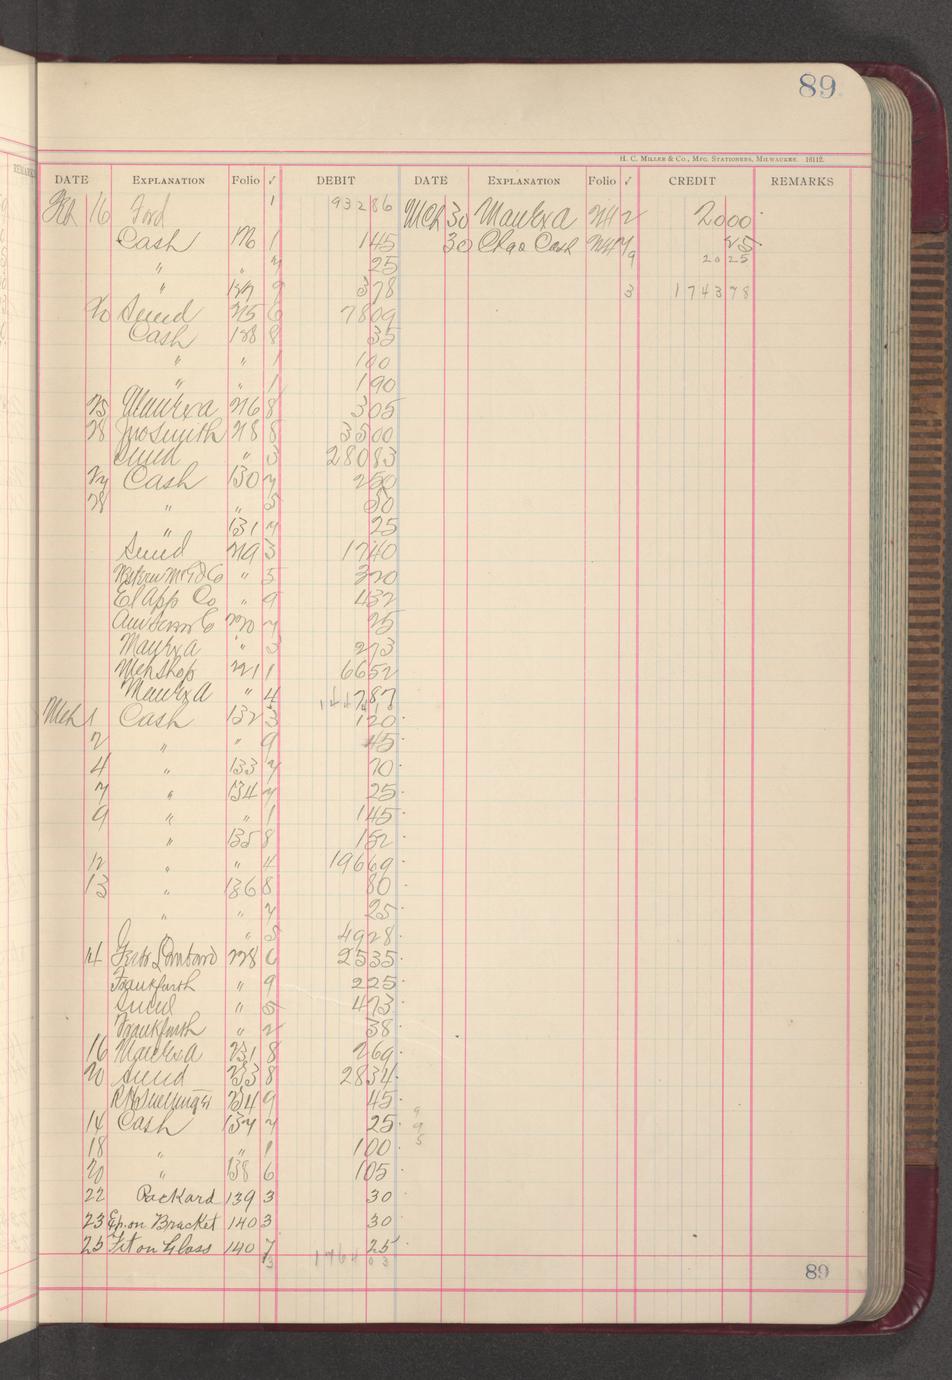 89
H. C. Miller & Co., Mfg. Stationers, Milwaukee 16112.
REMARKS
DATE EXPLANATION Folio ✓ DEBIT DATE EXPLANATION Folio ✓ CREDIT REMARKS
Feb 16 Ford 1 932 86 Mch 30 2 20 00
Cash 1 1 45 30 Chgo Cash 25
" " 7 25 9 20 25
" 9 3 78 3 1743 78
20 Sund 215 6 78 09
Cash 128 8 35
" " 1 1 00
" " 1 1 90
25 216 8 3 05
28 Jno Smith 218 8 35 00
Sund " 3 280 83
27 Cash 130 7 2 50
28 " " 5 50
" 131 7 25
Sund 219 3 17 40
" 5 3 20
El App Co " 9 4 32
220 7 25
" 3 2 73
Mch Shop 221 1 66 52
" 4 7 87
Mch 1 Cash 132 3 1 20
2 " " 9 45
4 " 133 7 70
7 " 134 7 25
9 " " 1 1 45
" 135 8 1 52
12 " " 4 196 69
13 " 136 8 80
" " 7 25
" " 5 49 28
14 228 6 25 35
Frankfurth " 9 2 25
Sund " 5 4 73
Frankfurth " 2 38
16 231 8 2 69
20 Sund 233 8 28 34
234 9 45
14 Cash 137 7 25
18 " " 1 1 00
20 " 138 6 1 05
22 Packard 139 3 30
23 Ep. on Bracket 140 3 30
25 Fit on Glass 140 7 25
3 1764 03
9
9
5
89